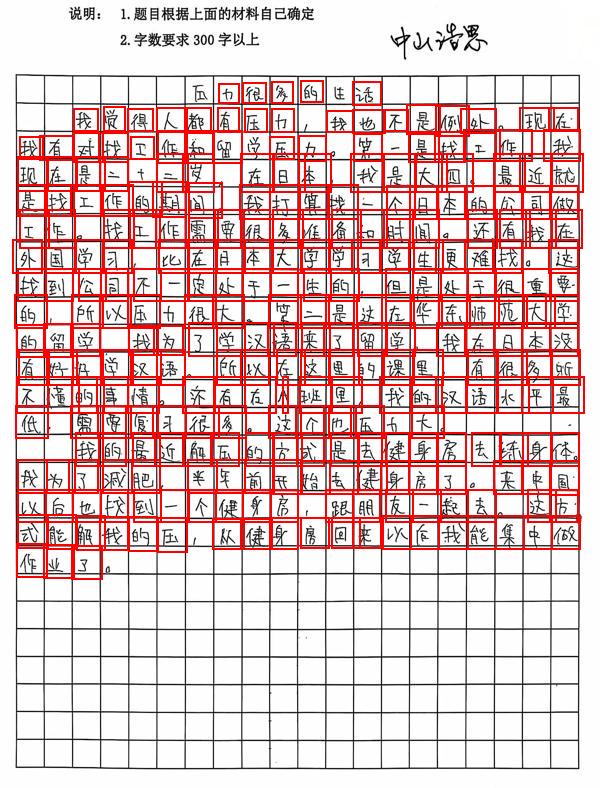 说明： 1.题目根据上面的材料自己确定
2.字数要求300字以上
中山浩思
压力很多的生活
我觉得人都有压力，我也不是例处。现在
我有对找工作和留学压力。第一是找工作。我
现在是二十二岁 在日本，我是大四。最近就
是找工作的期间 我打算找一个日本的公司做
工作。找工作需要很多准备和时间。还有我在
外国学习，比在日本大学学习学生更难找。这
找到公司不一定处于一生的，但是处于很重要
的，所以压力很大。第二是这在华东师范大学
的留学 我为了学汉语来了留学。我在日本没
有好好学汉语。所以在这里的课里，有很多听
不懂的事情。亦有在个班里，我的汉语水平最
低，需要复习很多。这个也压力大。
我的最近解压的方式是去健身房 去练身体。
我为了减肥，半年前开始去健身房了。来中国
以后也找到一个健身房，跟朋友一起去。这方
式能解我的压，从健身房回来以后我能集中做
作业了。